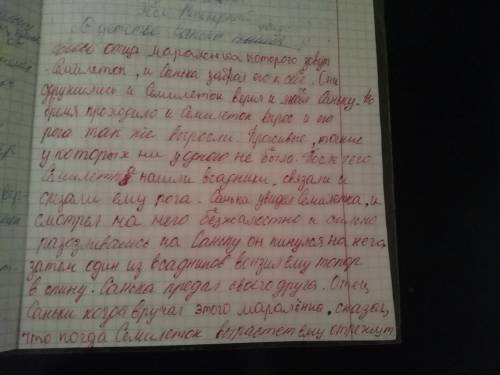 В детстве Санька
отца маралёнка которого зовут
Семилеток, и Санька забрал его к себе. Они
сдружились и Семилеток верил и любил Саньку. Но
время проходило и Семилеток вырос и его
рога так же выросли. Красивые, тонкие
у которых ни у одного не было. После чего
Семилетка нашли всадники, связали и
срезали ему рога. Санька увидел Семилетка, и
смотрел на него безжалостно и сильно
разозлившись на Саньку он кинулся на него
затем один из всадников вонзил ему топор
в спину. Санька предал своего друга. Отец
Саньки когда вручал этого маралёнка, сказал,
что когда Семилеток вырастет ему отрежут